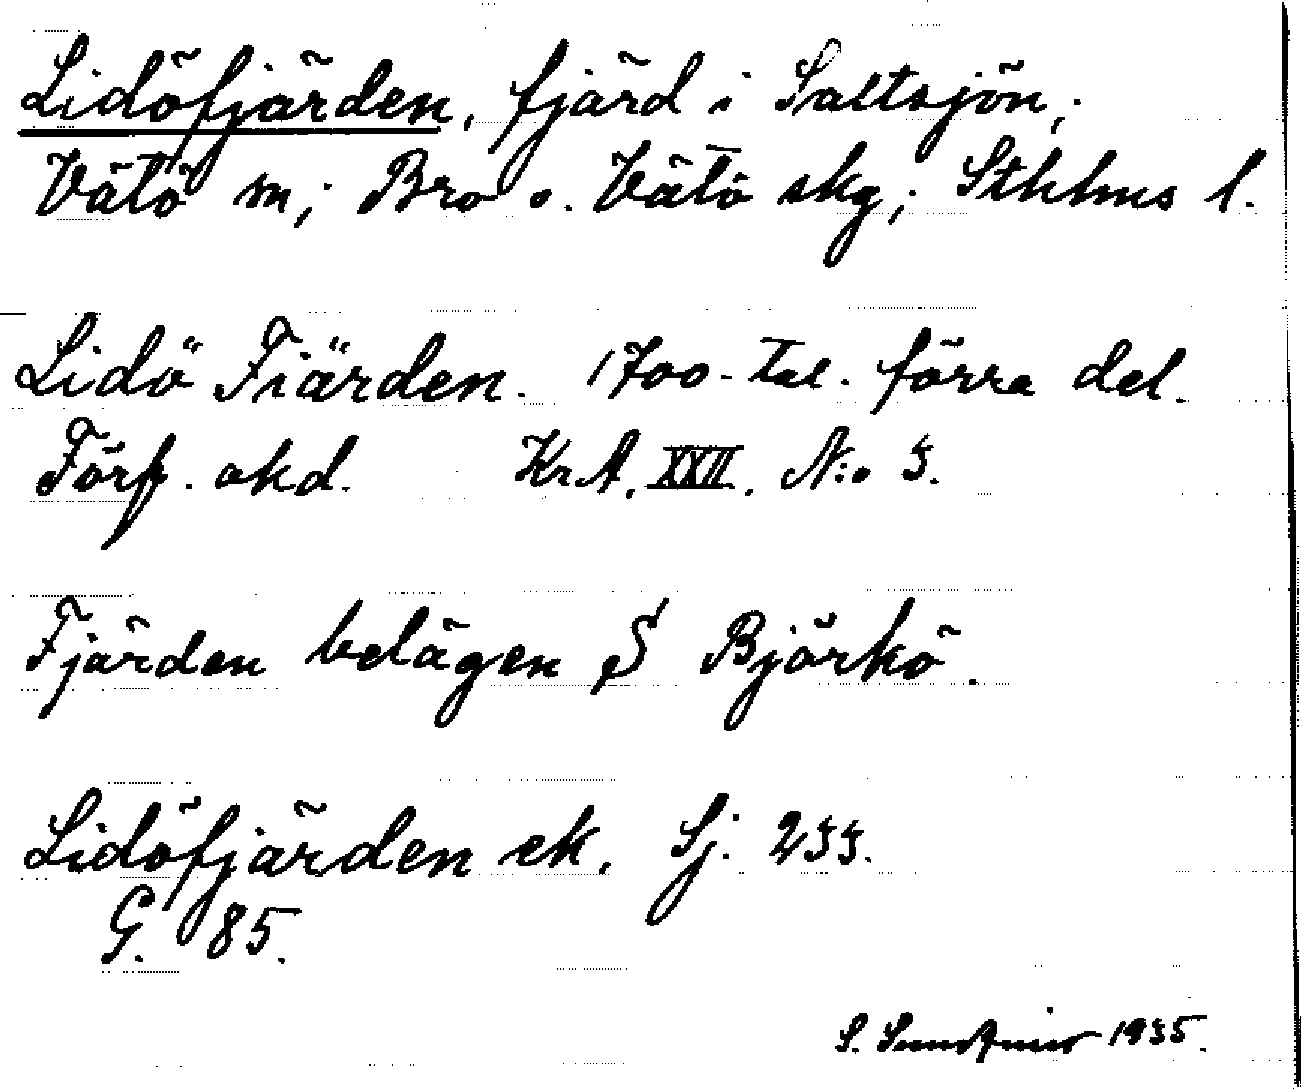 Lidöfjärden, fjärd i Saltsjön;
Vätö sn; Bro o. Vätö skg; Sthlms l.
Lidö Fiärden. 1700-tal. förra del.
Förf. okd. KrA. XXII. N:o 3.
Fjärden belägen S Björkö.
Lidöfjärden ek. Sj. 233.
G. 85.
S. 1935.